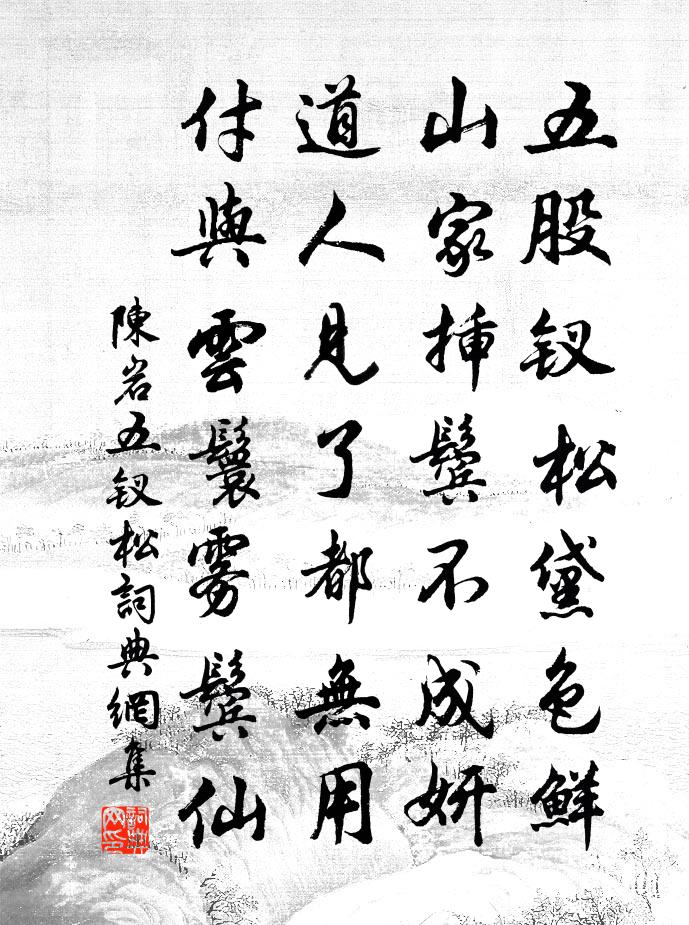 五股釵松黛色鮮
山家挿鬓不成妍
道人見了都無用
付與雲鬟雾鬓仙
陳岩五釵松詞典網集